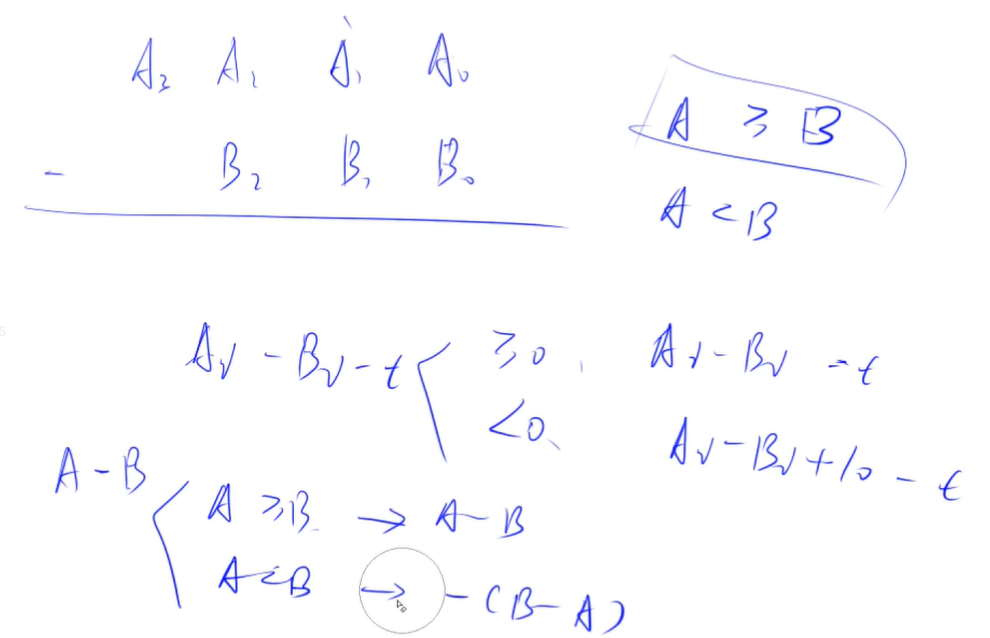 A₃ A₂ A₁ A₀
A ≥ B
- B₂ B₁ B₀
A < B
Aᵢ - Bᵢ - t ≥0, Aᵢ - Bᵢ - t
<0, Aᵢ - Bᵢ + 10 - t
A - B
A ≥ B → A - B
A < B → - (B - A)